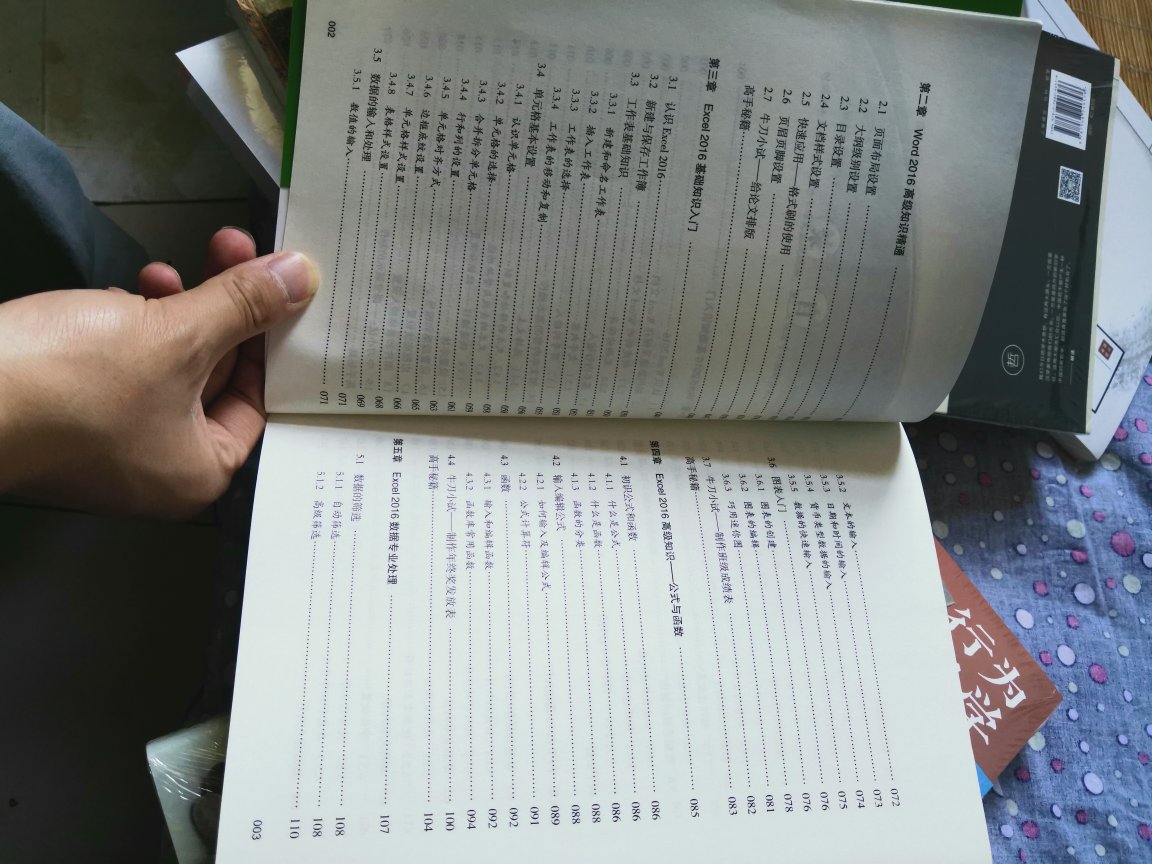 第二章 Word 2016 高级知识精通
2.1 页面布局设置
2.2 大纲级别设置
2.3 目录设置
2.4 文档样式设置
2.5 快速应用——格式刷的使用
2.6 页眉页脚设置
2.7 牛刀小试——给论文排版
高手秘籍
第三章 Excel 2016 基础知识入门
3.1 认识 Excel 2016
3.2 新建与保存工作簿
3.3 工作表基础知识
3.3.1 新建和命名工作表
3.3.2 插入工作表
3.3.3 工作表的选择
3.3.4 工作表的移动和复制
3.4 单元格基本设置
3.4.1 认识单元格
3.4.2 单元格的选择
3.4.3 合并拆分单元格 061
3.4.4 行和列的设置 063
3.4.5 单元格对齐方式 065
3.4.6 边框底纹设置 066
3.4.7 单元格样式设置 068
3.4.8 表格样式设置 069
3.5 数据的输入和处理 071
3.5.1 数值的输入 071
002
3.5.2 文本的输入 072
3.5.3 日期和时间的输入 073
3.5.4 货币类型数据的输入 074
3.5.5 数据的快速输入 075
3.6 图表入门 076
3.6.1 图表的创建 076
3.6.2 图表的编辑 078
3.6.3 巧用迷你图 081
3.7 牛刀小试——制作班级成绩表 082
高手秘籍 083
第四章 Excel 2016 高级知识——公式与函数 085
4.1 初识公式和函数 086
4.1.1 什么是公式 086
4.1.2 什么是函数 086
4.1.3 函数的分类 088
4.2 输入编辑公式 088
4.2.1 如何输入及编辑公式 089
4.2.2 公式计算符 091
4.3 函数 092
4.3.1 输入和编辑函数 092
4.3.2 函数库常用函数 094
4.4 牛刀小试——制作年终奖发放表 100
高手秘籍 104
第五章 Excel 2016 数据专业处理 107
5.1 数据的筛选 108
5.1.1 自动筛选 108
5.1.2 高级筛选 110
003
行为
学